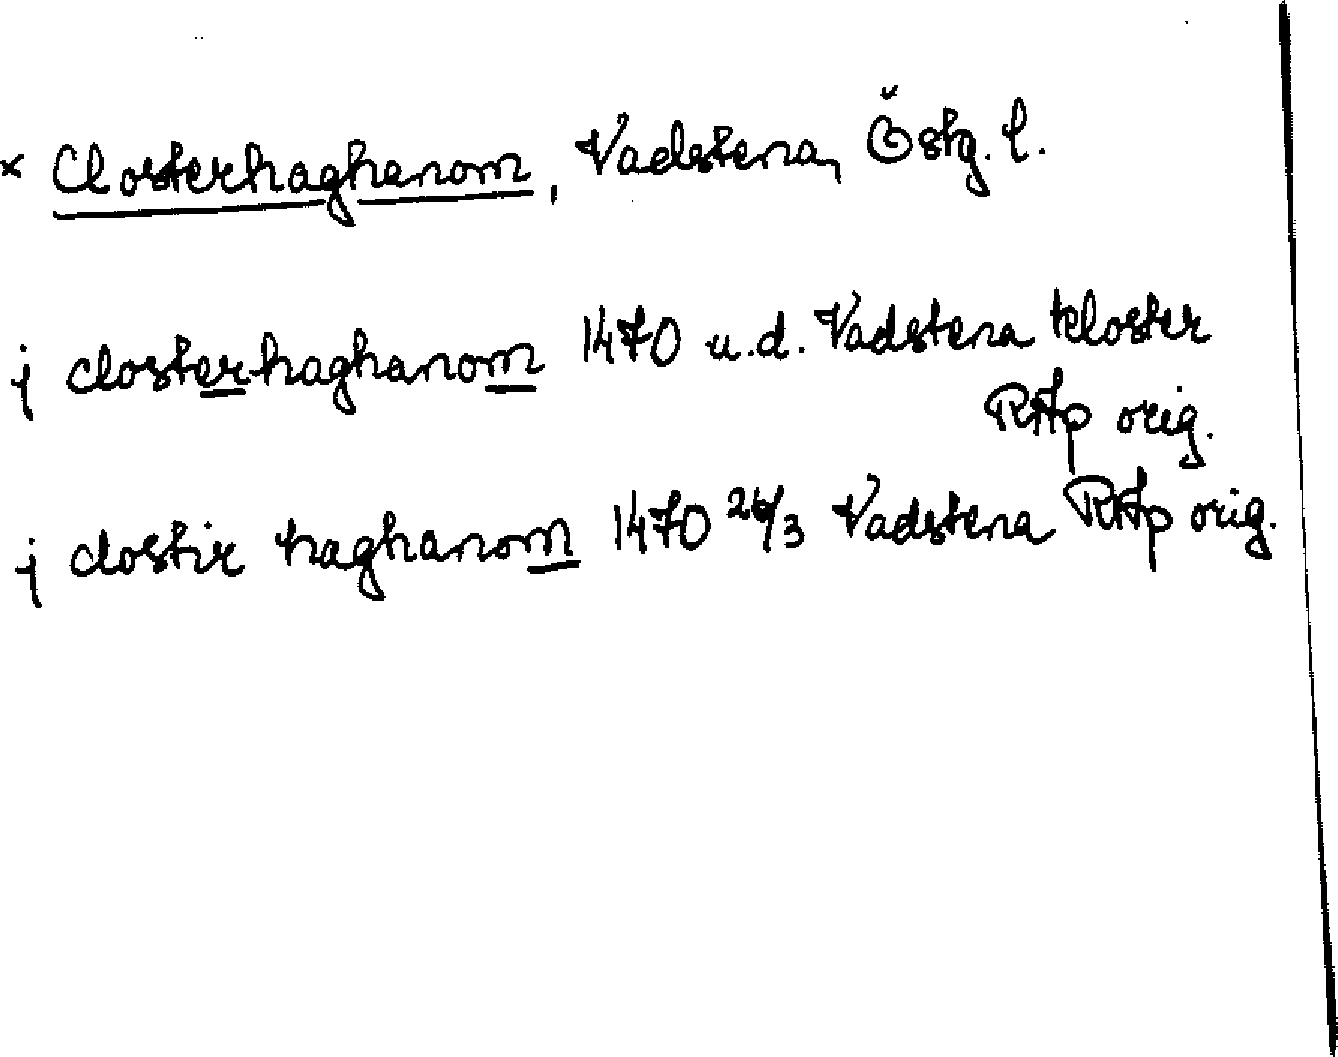 × Closterhaghanom, Vadstena, Östg. l.
j closterhaghanom 1470 u.d. Vadstena kloster
RAp orig.
j clostir haghanom 1470 26/3 Vadstena RAp orig.